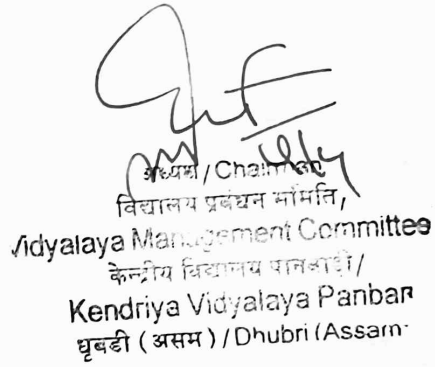 अध्यक्ष / Chairman
विद्यालय प्रबंधन समिति,
Vidyalaya Management Committee
केन्द्रीय विद्यालय पानबाड़ी/
Kendriya Vidyalaya Panbari
धुबडी ( असम ) / Dhubri (Assam